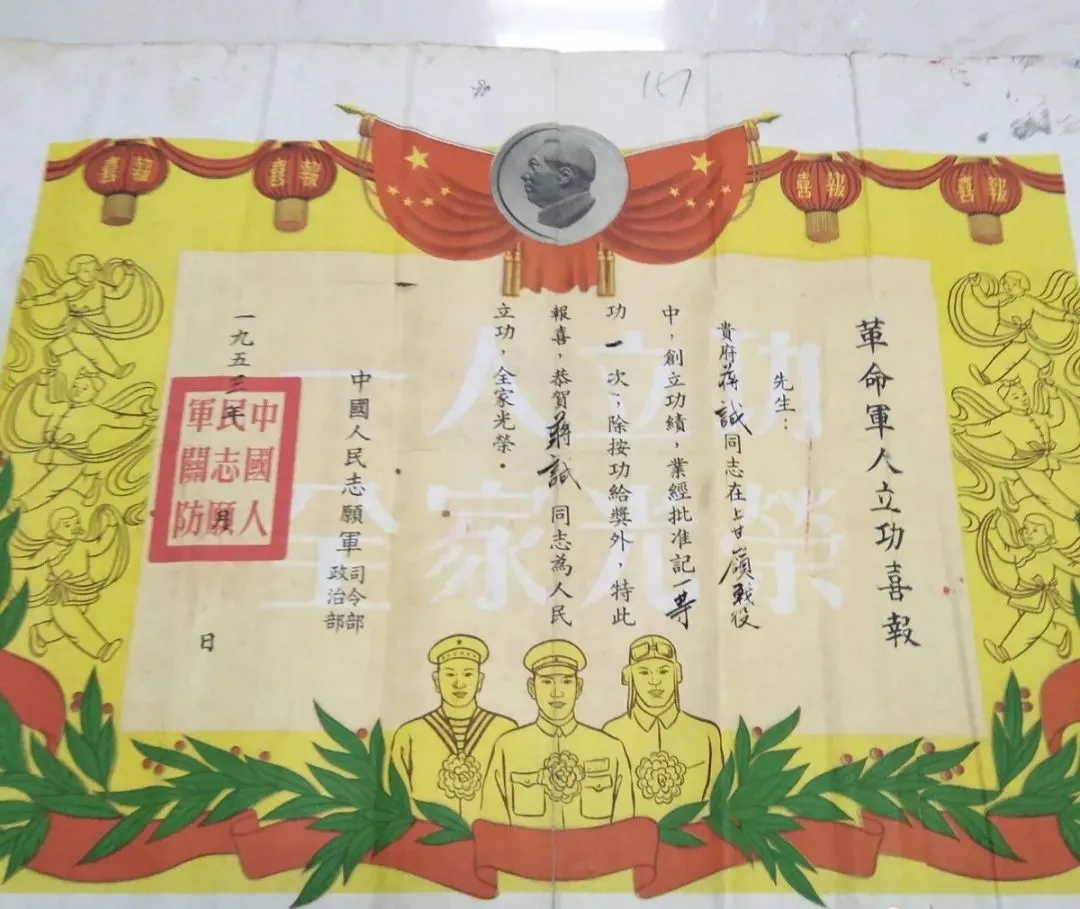 革命軍人立功喜報
先生：
貴府蔣誠同志在上甘嶺戰役
中，創立功績，業經批准記一等
功一次；除按功給獎外，特此
報喜，恭賀蔣誠同志為人民
立功，全家光榮。
中國人民志願軍司令部
政治部
一九五三年 月 日
中國人
民志願
軍關防
一人立功
全家光榮
喜報
喜報
喜報
喜報